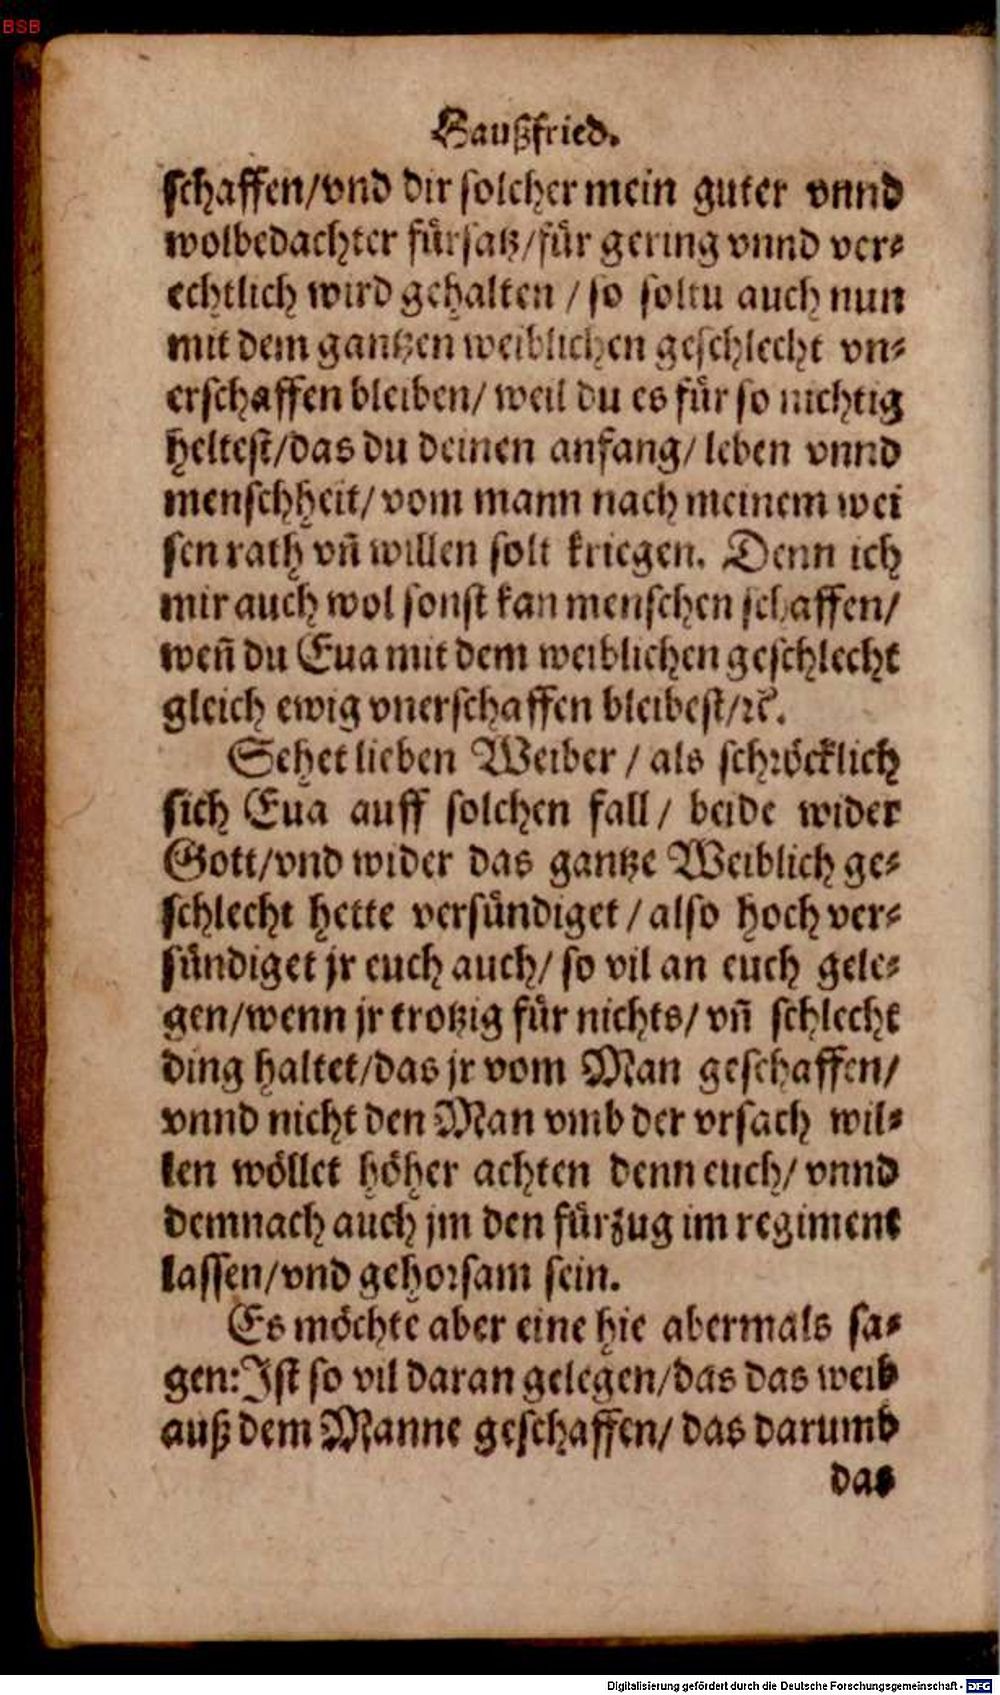 BSB
Haußfried.
schaffen/vnd dir solcher mein guter vnnd
wolbedachter fürsatz/für gering vnnd ver-
echtlich wird gehalten / so soltu auch nun
mit dem gantzen weiblichen geschlecht vn-
erschaffen bleiben/ weil du es für so nichtig
heltest/das du deinen anfang/ leben vnnd
menschheit/ vom mann nach meinem wei
sen rath vñ willen solt kriegen. Denn ich
mir auch wol sonst kan menschen schaffen/
weñ du Eua mit dem weiblichen geschlecht
gleich ewig vnerschaffen bleibest/ꝛc̃.
Sehet lieben Weiber / als schröcklich
sich Eua auff solchen fall / beide wider
Gott/vnd wider das gantze Weiblich ge-
schlecht hette versündiget / also hoch ver-
sündiget jr euch auch/ so vil an euch gele-
gen/wenn jr trotzig für nichts/ vñ schlecht
ding haltet/das jr vom Man geschaffen/
vnnd nicht den Man vmb der vrsach wil-
len wöllet höher achten denn euch/ vnnd
demnach auch jm den fürzug im regiment
lassen/vnd gehorsam sein.
Es möchte aber eine hie abermals sa-
gen: Ist so vil daran gelegen/das das weib
auß dem Manne geschaffen/ das darumb
das
Digitalisierung gefördert durch die Deutsche Forschungsgemeinschaft - DFG